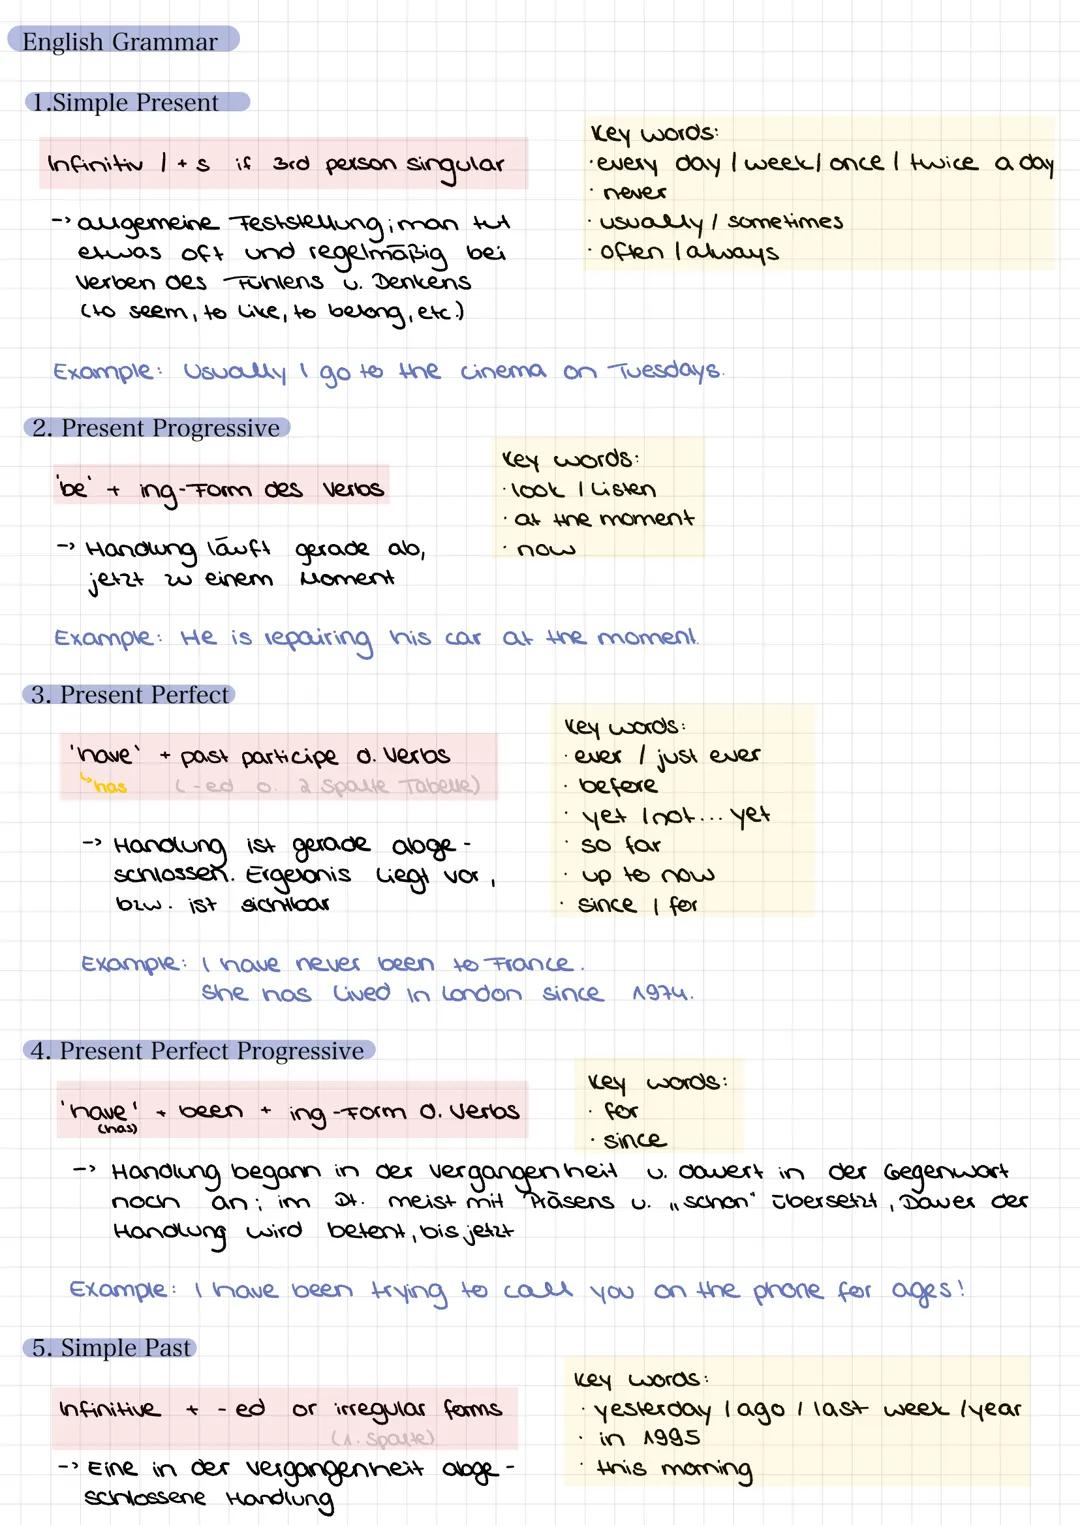 English Grammar
1.Simple Present
Infinitiv / + s if 3rd person singular
Key words:
· every day / week / once / twice a day
· never
· usually / sometimes
· often / always
-> allgemeine Feststellung; man tut
etwas oft und regelmäßig bei
Verben des Fühlens u. Denkens
(to seem, to like, to belong, etc.)
Example: Usually I go to the cinema on Tuesdays.
2. Present Progressive
'be' + ing-Form des Verbs
Key words:
· look / Listen
· at the moment
· now
-> Handlung läuft gerade ab,
jetzt zu einem Moment
Example: He is repairing his car at the moment.
3. Present Perfect
'have' + past participe d. Verbs
↳has (-ed o. 2 Spalte Tabelle)
Key words:
· ever / just ever
· before
· yet / not... yet
· so far
· up to now
· since / for
-> Handlung ist gerade abge-
schlossen. Ergebnis liegt vor,
bzw. ist sichtbar
Example: I have never been to France.
She has lived in London since 1974.
4. Present Perfect Progressive
'have' + been + ing-Form d. Verbs
(has)
Key words:
· for
· since
-> Handlung begann in der Vergangenheit u. dauert in der Gegenwart
noch an; im Dt. meist mit Präsens u. „schon" übersetzt, Dauer der
Handlung wird betont, bis jetzt
Example: I have been trying to call you on the phone for ages!
5. Simple Past
Infinitive + -ed or irregular forms
(1. Spalte)
Key words:
· yesterday / ago / last week / year
· in 1995
· this morning
-> Eine in der Vergangenheit abge-
schlossene Handlung